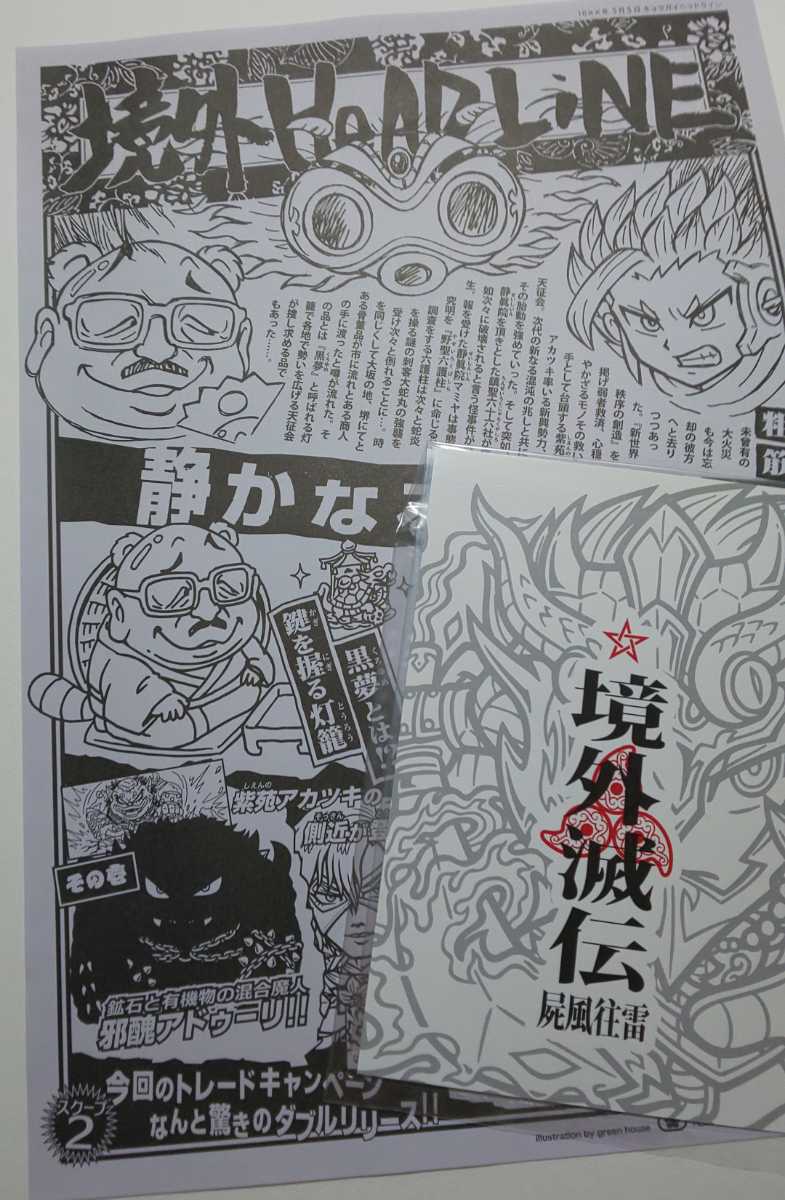 16××年5月5日キョウガイヘッドライン
境外HEADLiNE
未曾有の
大火災
も今は忘
却の彼方
へと去り
つつあっ
た。『新世界
秩序の創造』を
掲げ弱者救済、心穏
やかざるモノその救い
手として台頭する紫苑
アカツキ率いる新興勢力、
天征会。次代の新なる混沌の兆しと共に
その胎動を強めていった。そして突如
静眞院を頂きとした鎮聖六十六社が
如次々に破壊されると言う怪事件が
生。報を受けた静眞院マミヤは事態
究明を『野聖六護柱』に命じる
調査をする六護柱は次々と蛇炎
を操る謎の刺客大蛇丸の強襲を
受け次々と倒れることに…。時
を同じくして大坂の地、堺にてと
ある骨董品が市に流れとある商人
の手に渡ったと噂が流れた。そ
の品とは『黒夢』と呼ばれる灯
籠で各地で勢いを広げる天征会
が捜し求める品で
もあった……。
静かな
黒夢とは!?
鍵を握る灯籠
かぎ にぎ とうろう
しえんの
紫苑アカツキの
そっきん
側近が
その壱
鉱石と有機物の混合魔人
邪醜アドゥーリ!!
スクープ
2
今回のトレードキャンペーン
なんと驚きのダブルリリース!!
illustration by green house
境外滅伝
屍風往雷